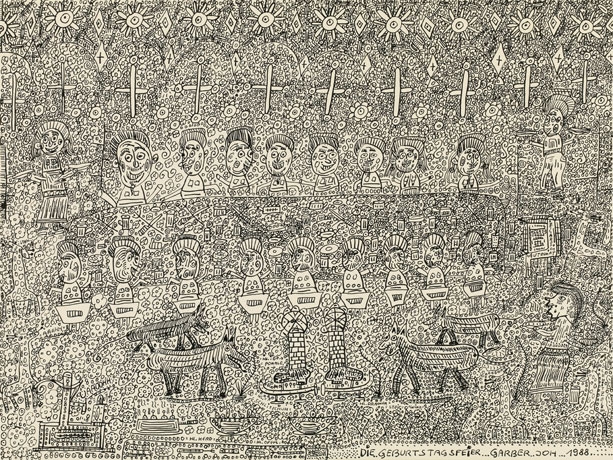 DIE GEBURTSTAGSFEIER...GARBER.JOH...1988.